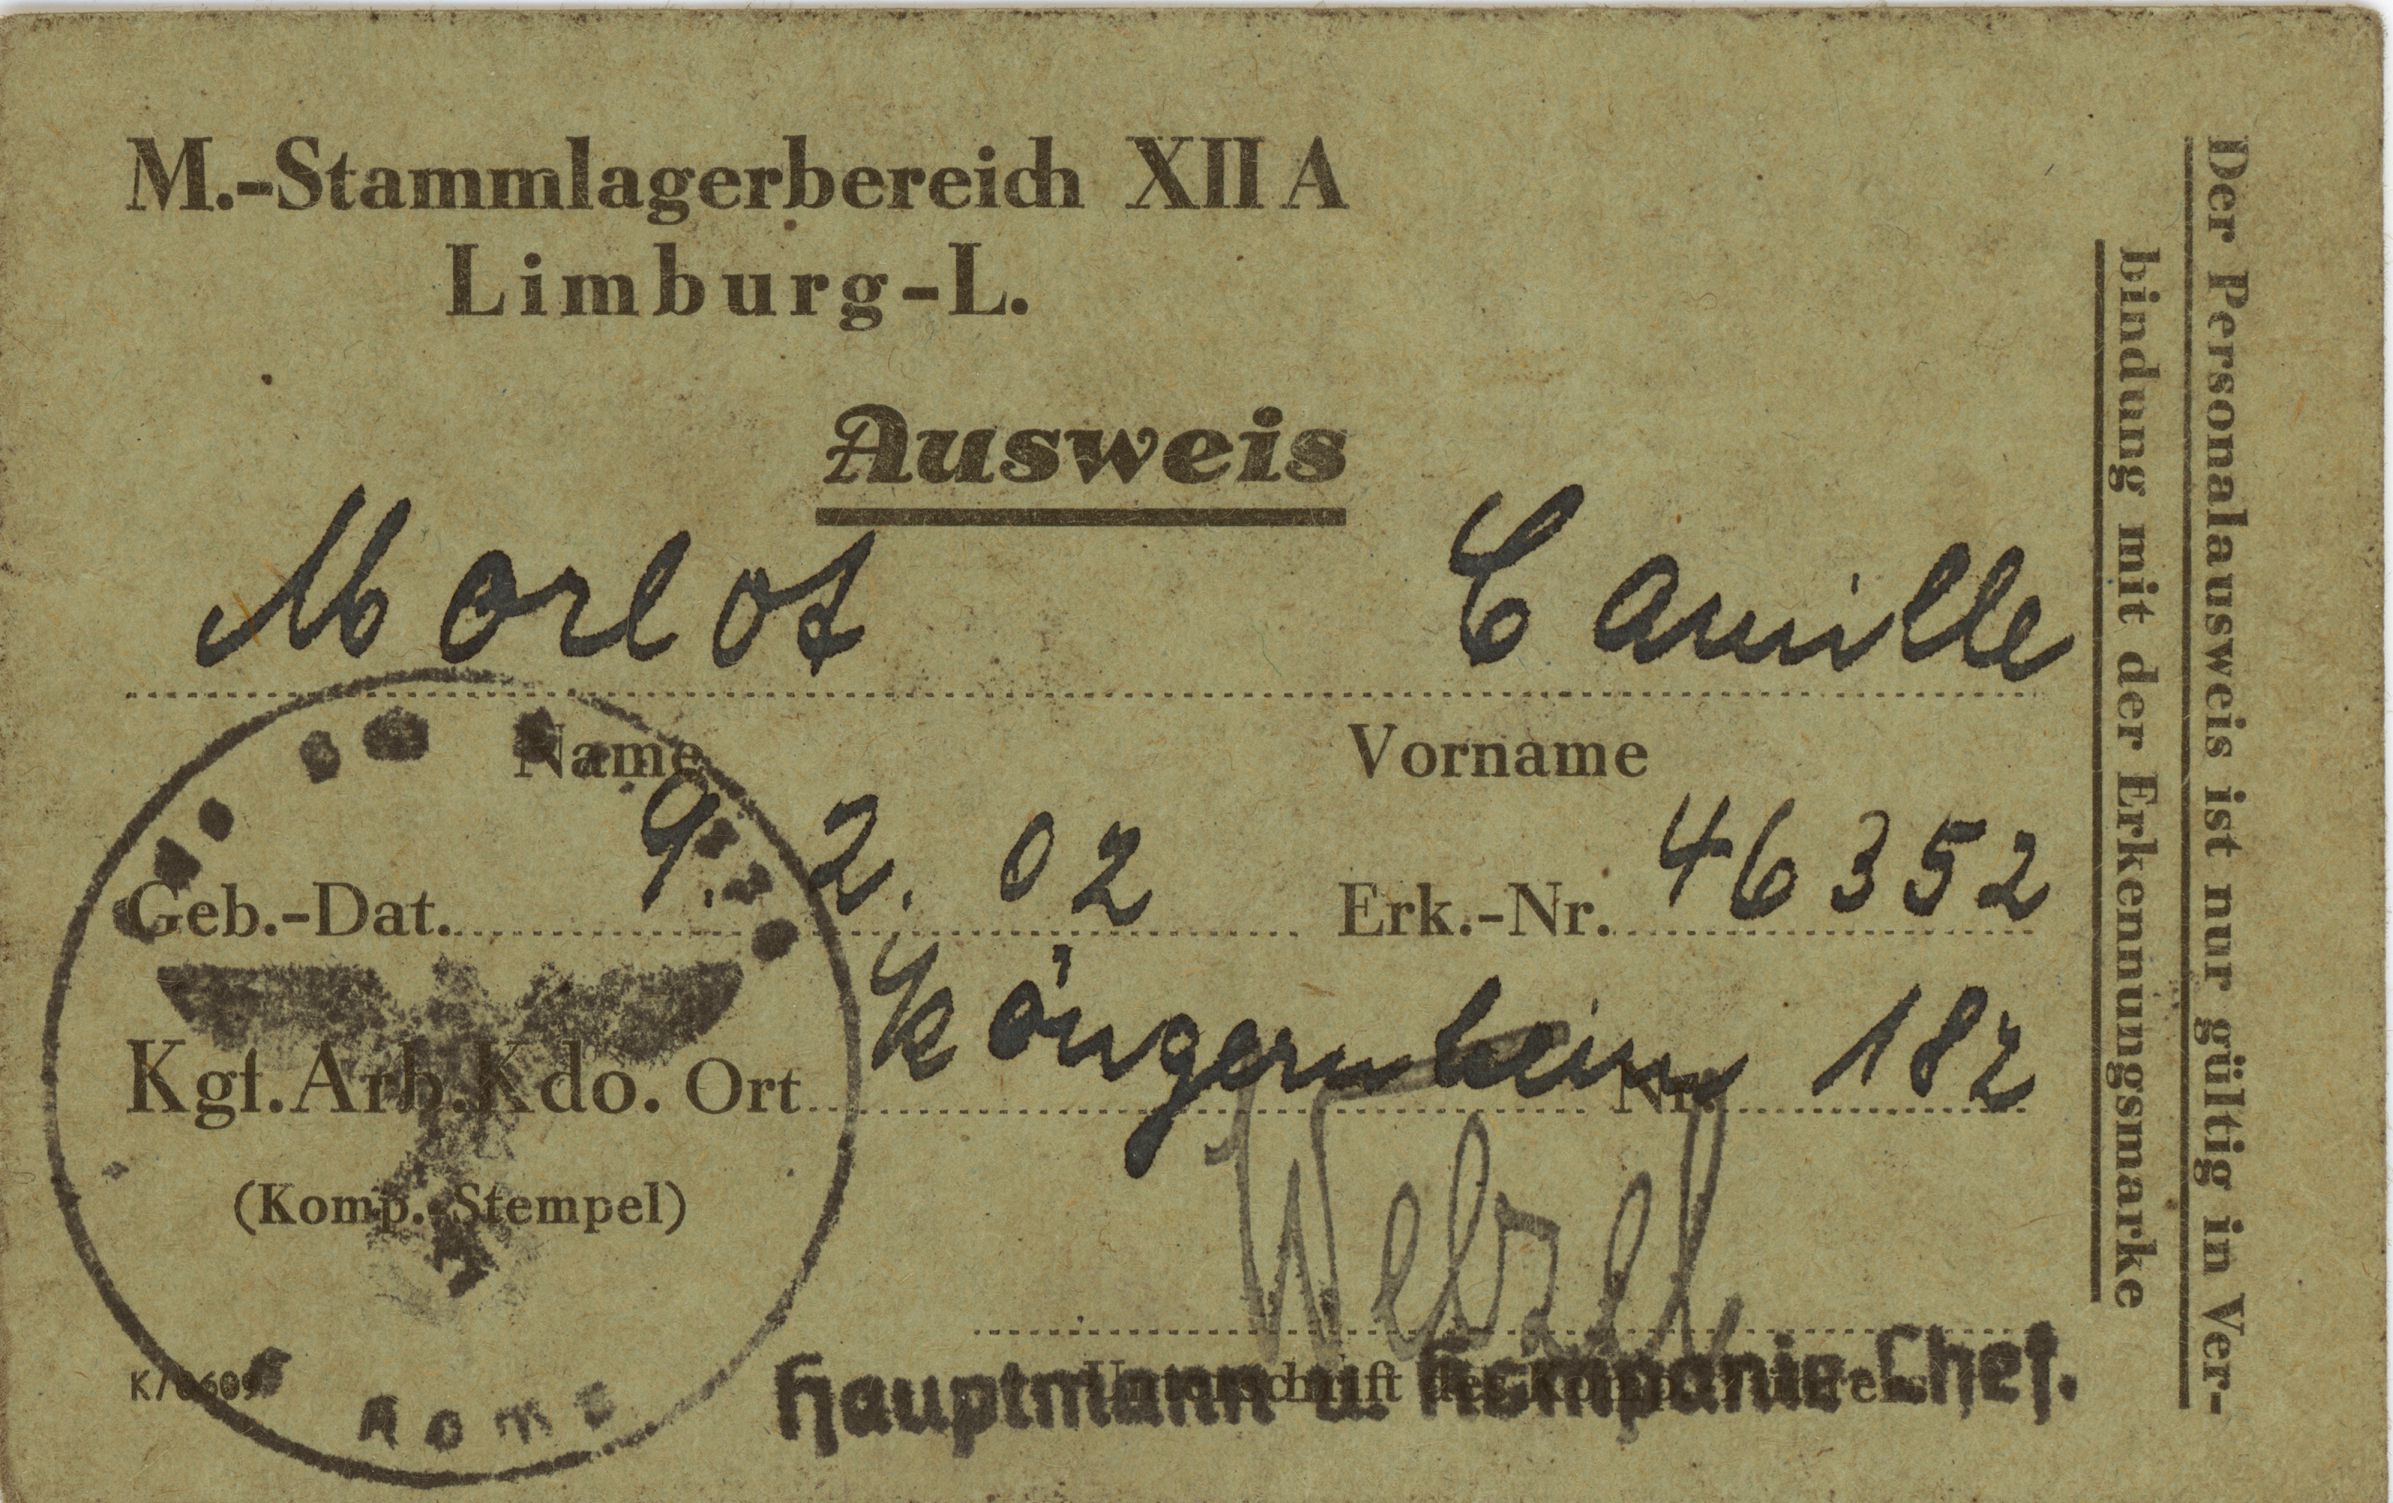 M.-Stammlagerbereich XII A
Limburg-L.
Ausweis
Morlot Camille
Name Vorname
Geb.-Dat. 9. 2. 02 Erk.-Nr. 46352
Kgf.Arb.Kdo. Ort Köngernheim Nr. 182
(Komp.-Stempel)
Unterschrift des Komp.-Führers
Hauptmann u. Kompanie-Chef.
Der Personalausweis ist nur gültig in Ver-
bindung mit der Erkennungsmarke